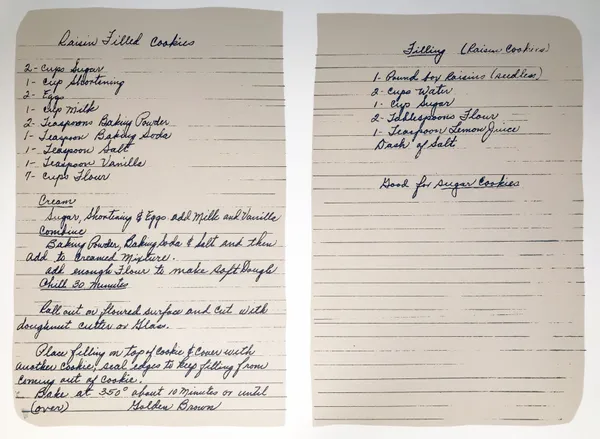 Raisin Filled Cookies
2- Cups Sugar
1- Cup Shortening
2- Eggs
1- Cup Milk
2- Teaspoons Baking Powder
1- Teaspoon Baking Soda
1- Teaspoon Salt
1- Teaspoon Vanilla
7- Cups Flour
Cream
Sugar, Shortening & Eggs add Milk and Vanilla
Combine
Baking Powder, Baking Soda & Salt and then
add to Creamed Mixture.
add enough Flour to make Soft Dough
Chill 30 minutes
Roll out on floured surface and Cut with
doughnut cutter or Glass.
Place filling on top of Cookie & Cover with
another Cookie, seal edges to keep filling from
coming out of Cookie.
Bake at 350° about 10 Minutes or until
(over) Golden Brown
Filling (Raisin Cookies)
1- Pound box Raisins (seedless)
2- Cups Water
1- Cup Sugar
2- Tablespoons Flour
1- Teaspoon Lemon Juice
Dash of Salt
Good for Sugar Cookies